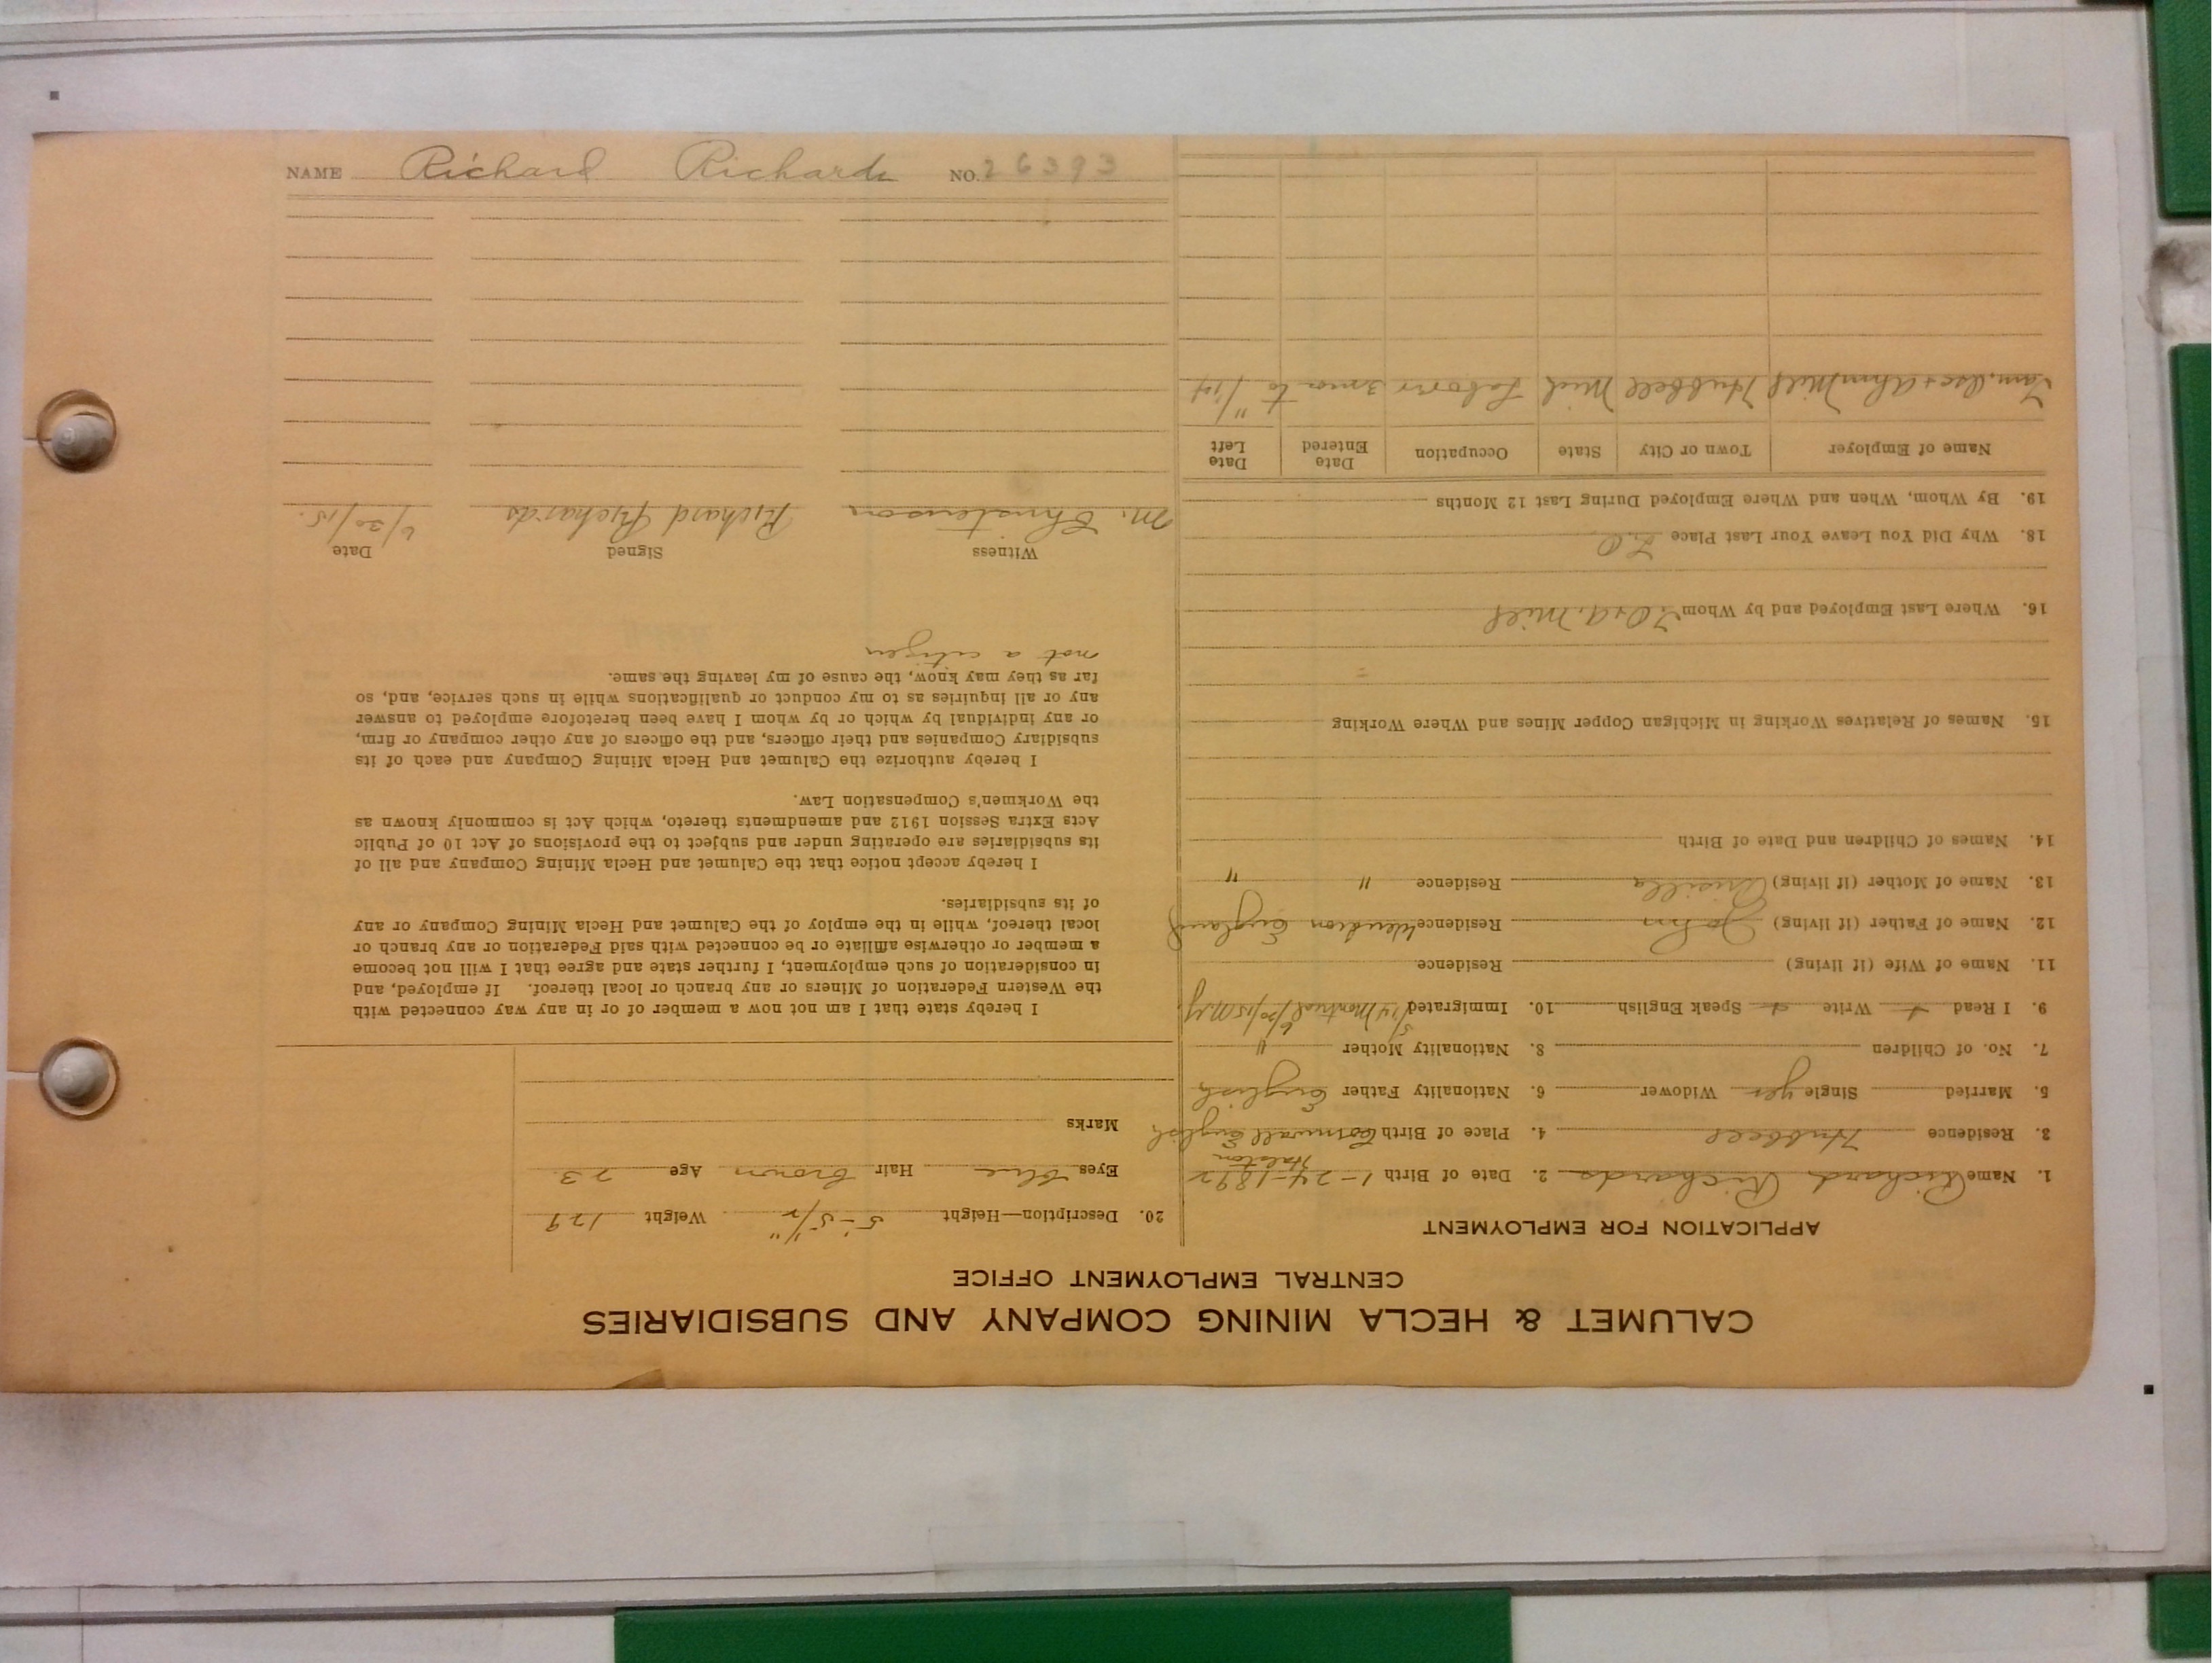 NAME Richard Richards NO. 26393
CALUMET & HECLA MINING COMPANY AND SUBSIDIARIES
CENTRAL EMPLOYMENT OFFICE
APPLICATION FOR EMPLOYMENT
1. Name Richard Richards 2. Date of Birth 1-24-1892
3. Residence Hubbell 4. Place of Birth Cornwall English
5. Married Single yes Widower 6. Nationality Father English
7. No. of Children 8. Nationality Mother "
9. I Read + Write + Speak English 10. Immigrated 5/14 Montreal 6/20/15
11. Name of Wife (if living) Residence
12. Name of Father (if living) John Residence Wendron England
13. Name of Mother (if living) Residence " "
14. Names of Children and Date of Birth
15. Names of Relatives Working in Michigan Copper Mines and Where Working
16. Where Last Employed and by Whom Mill
18. Why Did You Leave Your Last Place
19. By Whom, When and Where Employed During Last 12 Months
Name of Employer Town or City State Occupation Date Entered Date Left
Tam, Osc + Ahm Mill Hubbell Mich Labour 3 mo to
20. Description—Height 5-5 1/2" Weight 129
Eyes blue Hair brown Age 23
Marks
I hereby state that I am not now a member of or in any way connected with
the Western Federation of Miners or any branch or local thereof. If employed, and
in consideration of such employment, I further state and agree that I will not become
a member or otherwise affiliate or be connected with said Federation or any branch or
local thereof, while in the employ of the Calumet and Hecla Mining Company or any
of its subsidiaries.
I hereby accept notice that the Calumet and Hecla Mining Company and all of
its subsidiaries are operating under and subject to the provisions of Act 10 of Public
Acts Extra Session 1912 and amendments thereto, which Act is commonly known as
the Workmen's Compensation Law.
I hereby authorize the Calumet and Hecla Mining Company and each of its
subsidiary Companies and their officers, and the officers of any other company or firm,
or any individual by which or by whom I have been heretofore employed to answer
any or all inquiries as to my conduct or qualifications while in such service, and, so
far as they may know, the cause of my leaving the same.
not a citizen
Witness Signed Date
M. Christenson Richard Richards 6/30/15.